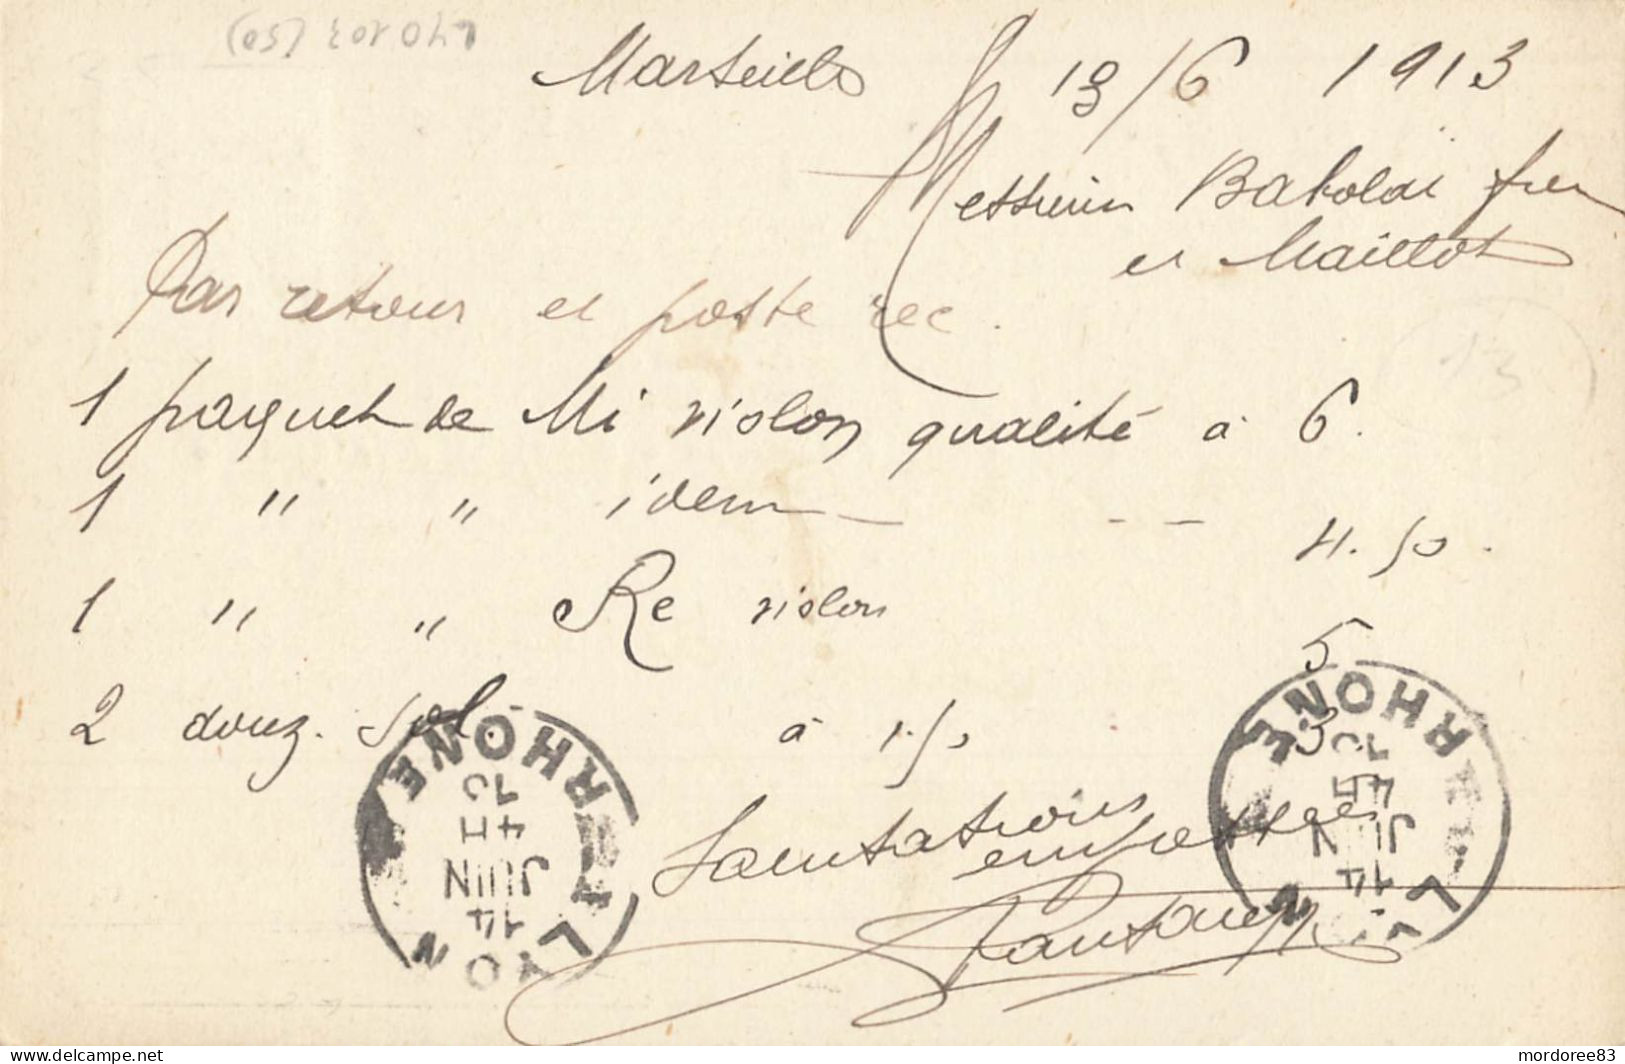 Marseille 13/6 1913
Messieurs Babolat frères
et Maillot
Par retour et poste rec.
1 paquet de Mi violon qualité à 6.
1 " " idem — - - 4.50.
1 " " Re violon 5
2 douz. sol. à 1.50 3.
Salutations
empressées
RHONE
13
4H
JUIN
14
LYON
RHONE
13
4H
JUIN
14
www.delcampe.net
mordoree83